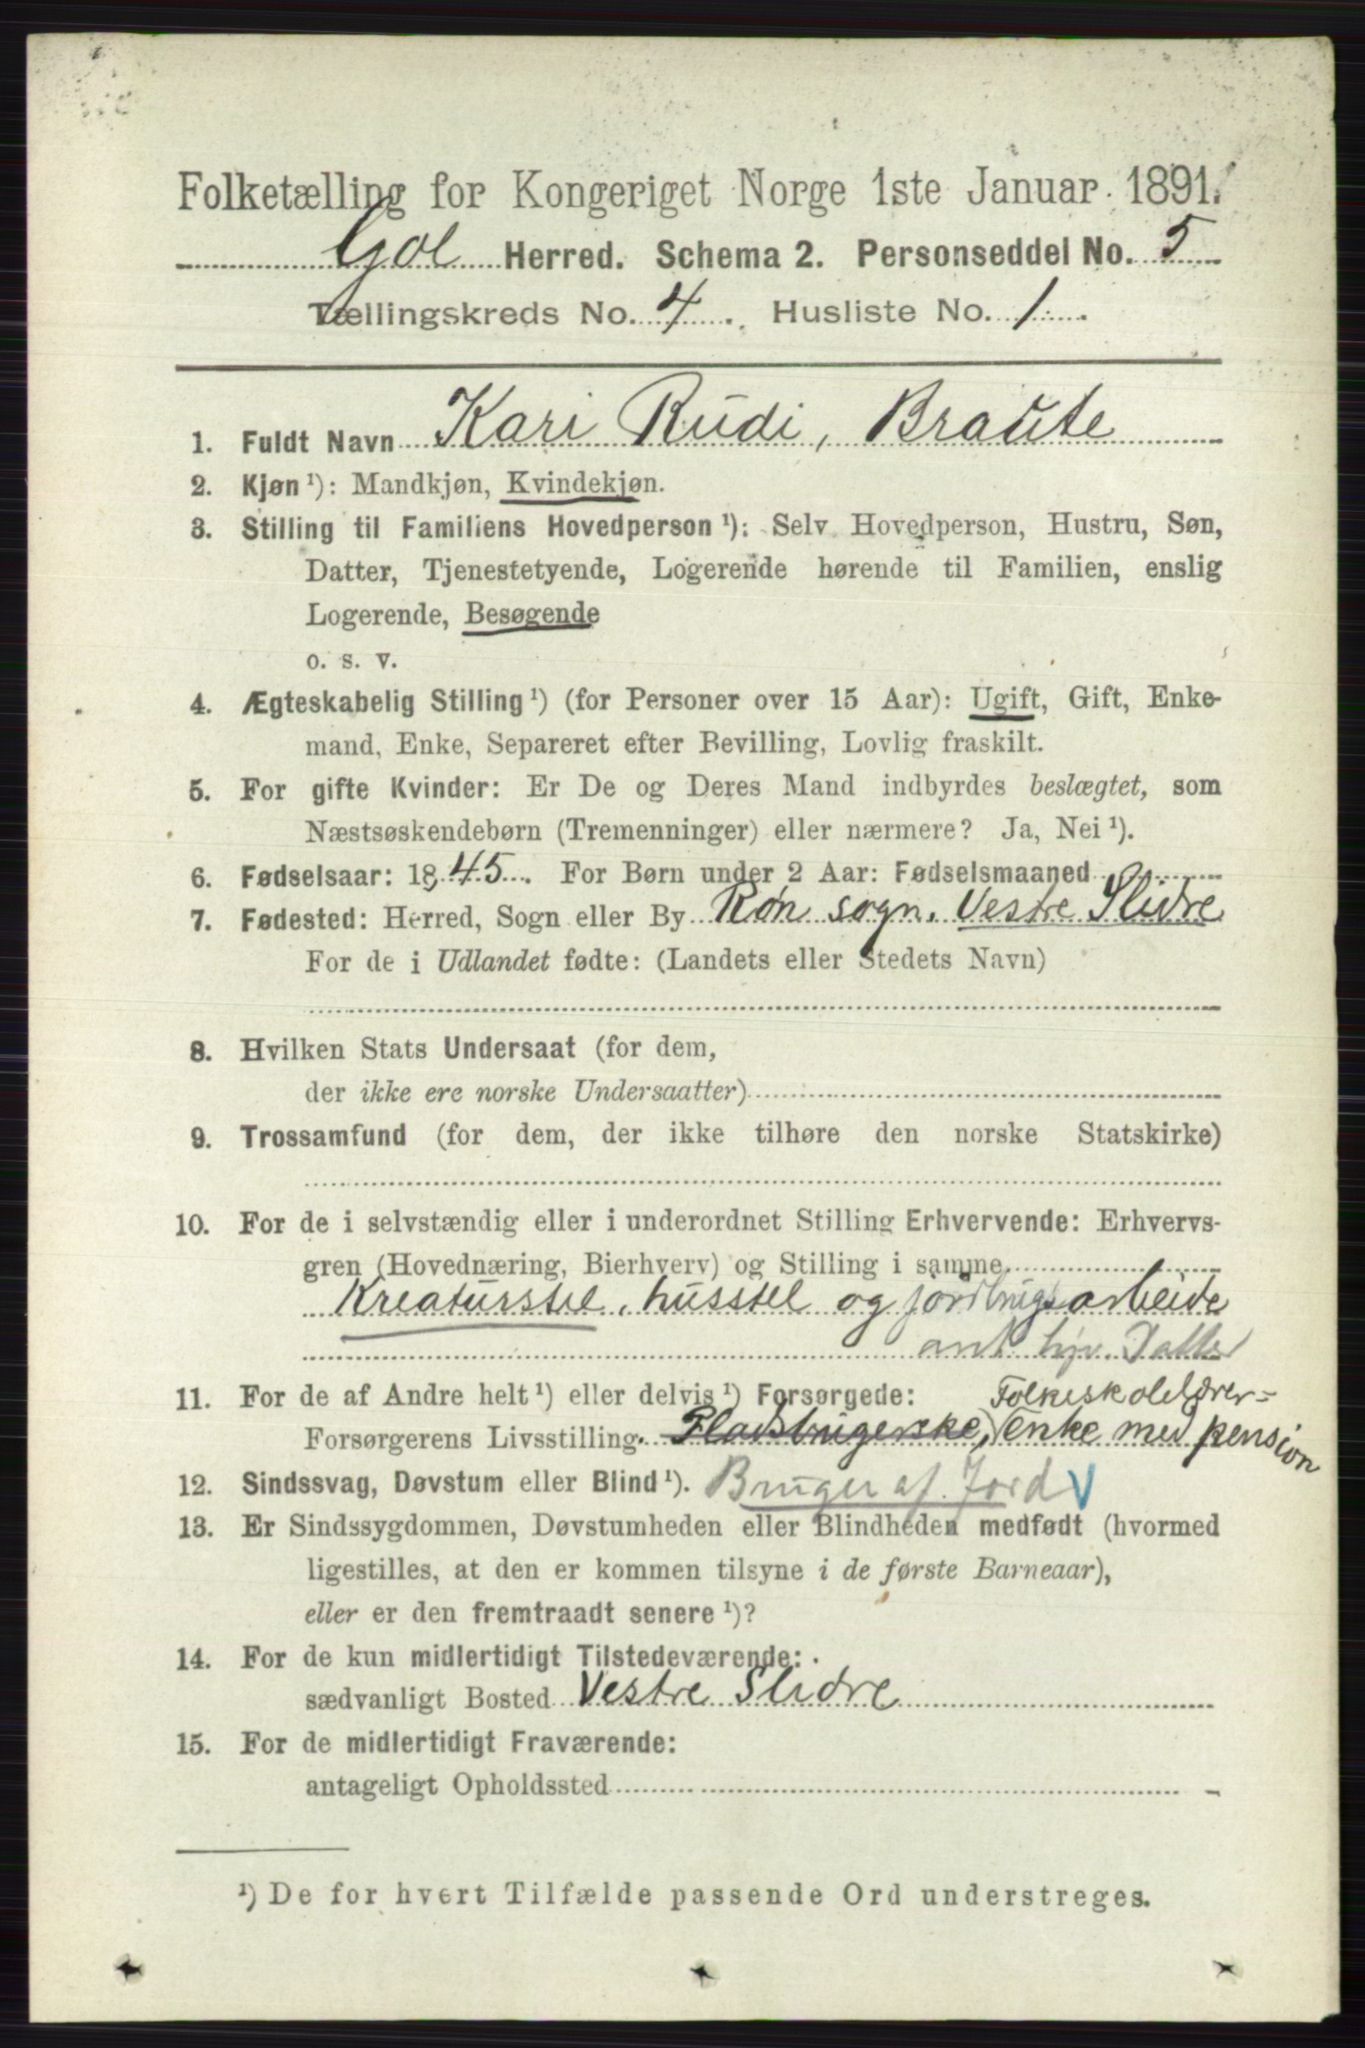 Folketælling for Kongeriget Norge 1ste Januar 1891.
Gol Herred. Schema 2. Personseddel No. 5
Tællingskreds No. 4. Husliste No. 1.
1. Fuldt Navn Kari Rudi, Braute
2. Kjøn ¹): Mandkjøn, Kvindekjøn.
3. Stilling til Familiens Hovedperson ¹): Selv Hovedperson, Hustru, Søn,
Datter, Tjenestetyende, Logerende hørende til Familien, enslig
Logerende, Besøgende
o. s. v.
4. Ægteskabelig Stilling ¹) (for Personer over 15 Aar): Ugift, Gift, Enke-
mand, Enke, Separeret efter Bevilling, Lovlig fraskilt.
5. For gifte Kvinder: Er De og Deres Mand indbyrdes beslægtet, som
Næstsøskendebørn (Tremenninger) eller nærmere? Ja, Nei ¹).
6. Fødselsaar: 1845. For Børn under 2 Aar: Fødselsmaaned
7. Fødested: Herred, Sogn eller By Røn sogn. Vestre Slidre
For de i Udlandet fødte: (Landets eller Stedets Navn)
8. Hvilken Stats Undersaat (for dem,
der ikke ere norske Undersaatter)
9. Trossamfund (for dem, der ikke tilhøre den norske Statskirke)
10. For de i selvstændig eller i underordnet Stilling Erhvervende: Erhvervs-
gren (Hovednæring, Bierhverv) og Stilling i samme
Kreaturstel, husstel og jordbrugsarbeide
ant. hjv. Datter
11. For de af Andre helt ¹) eller delvis ¹) Forsørgede: Folkeskolelærer-
Forsørgerens Livsstilling. Pladsbrugerske, enke med pension
12. Sindssvag, Døvstum eller Blind ¹). Bruger af Jord
13. Er Sindssygdommen, Døvstumheden eller Blindheden medfødt (hvormed
ligestilles, at den er kommen tilsyne i de første Barneaar),
eller er den fremtraadt senere ¹)?
14. For de kun midlertidigt Tilstedeværende:
sædvanligt Bosted Vestre Slidre
15. For de midlertidigt Fraværende:
antageligt Opholdssted
¹) De for hvert Tilfælde passende Ord understreges.